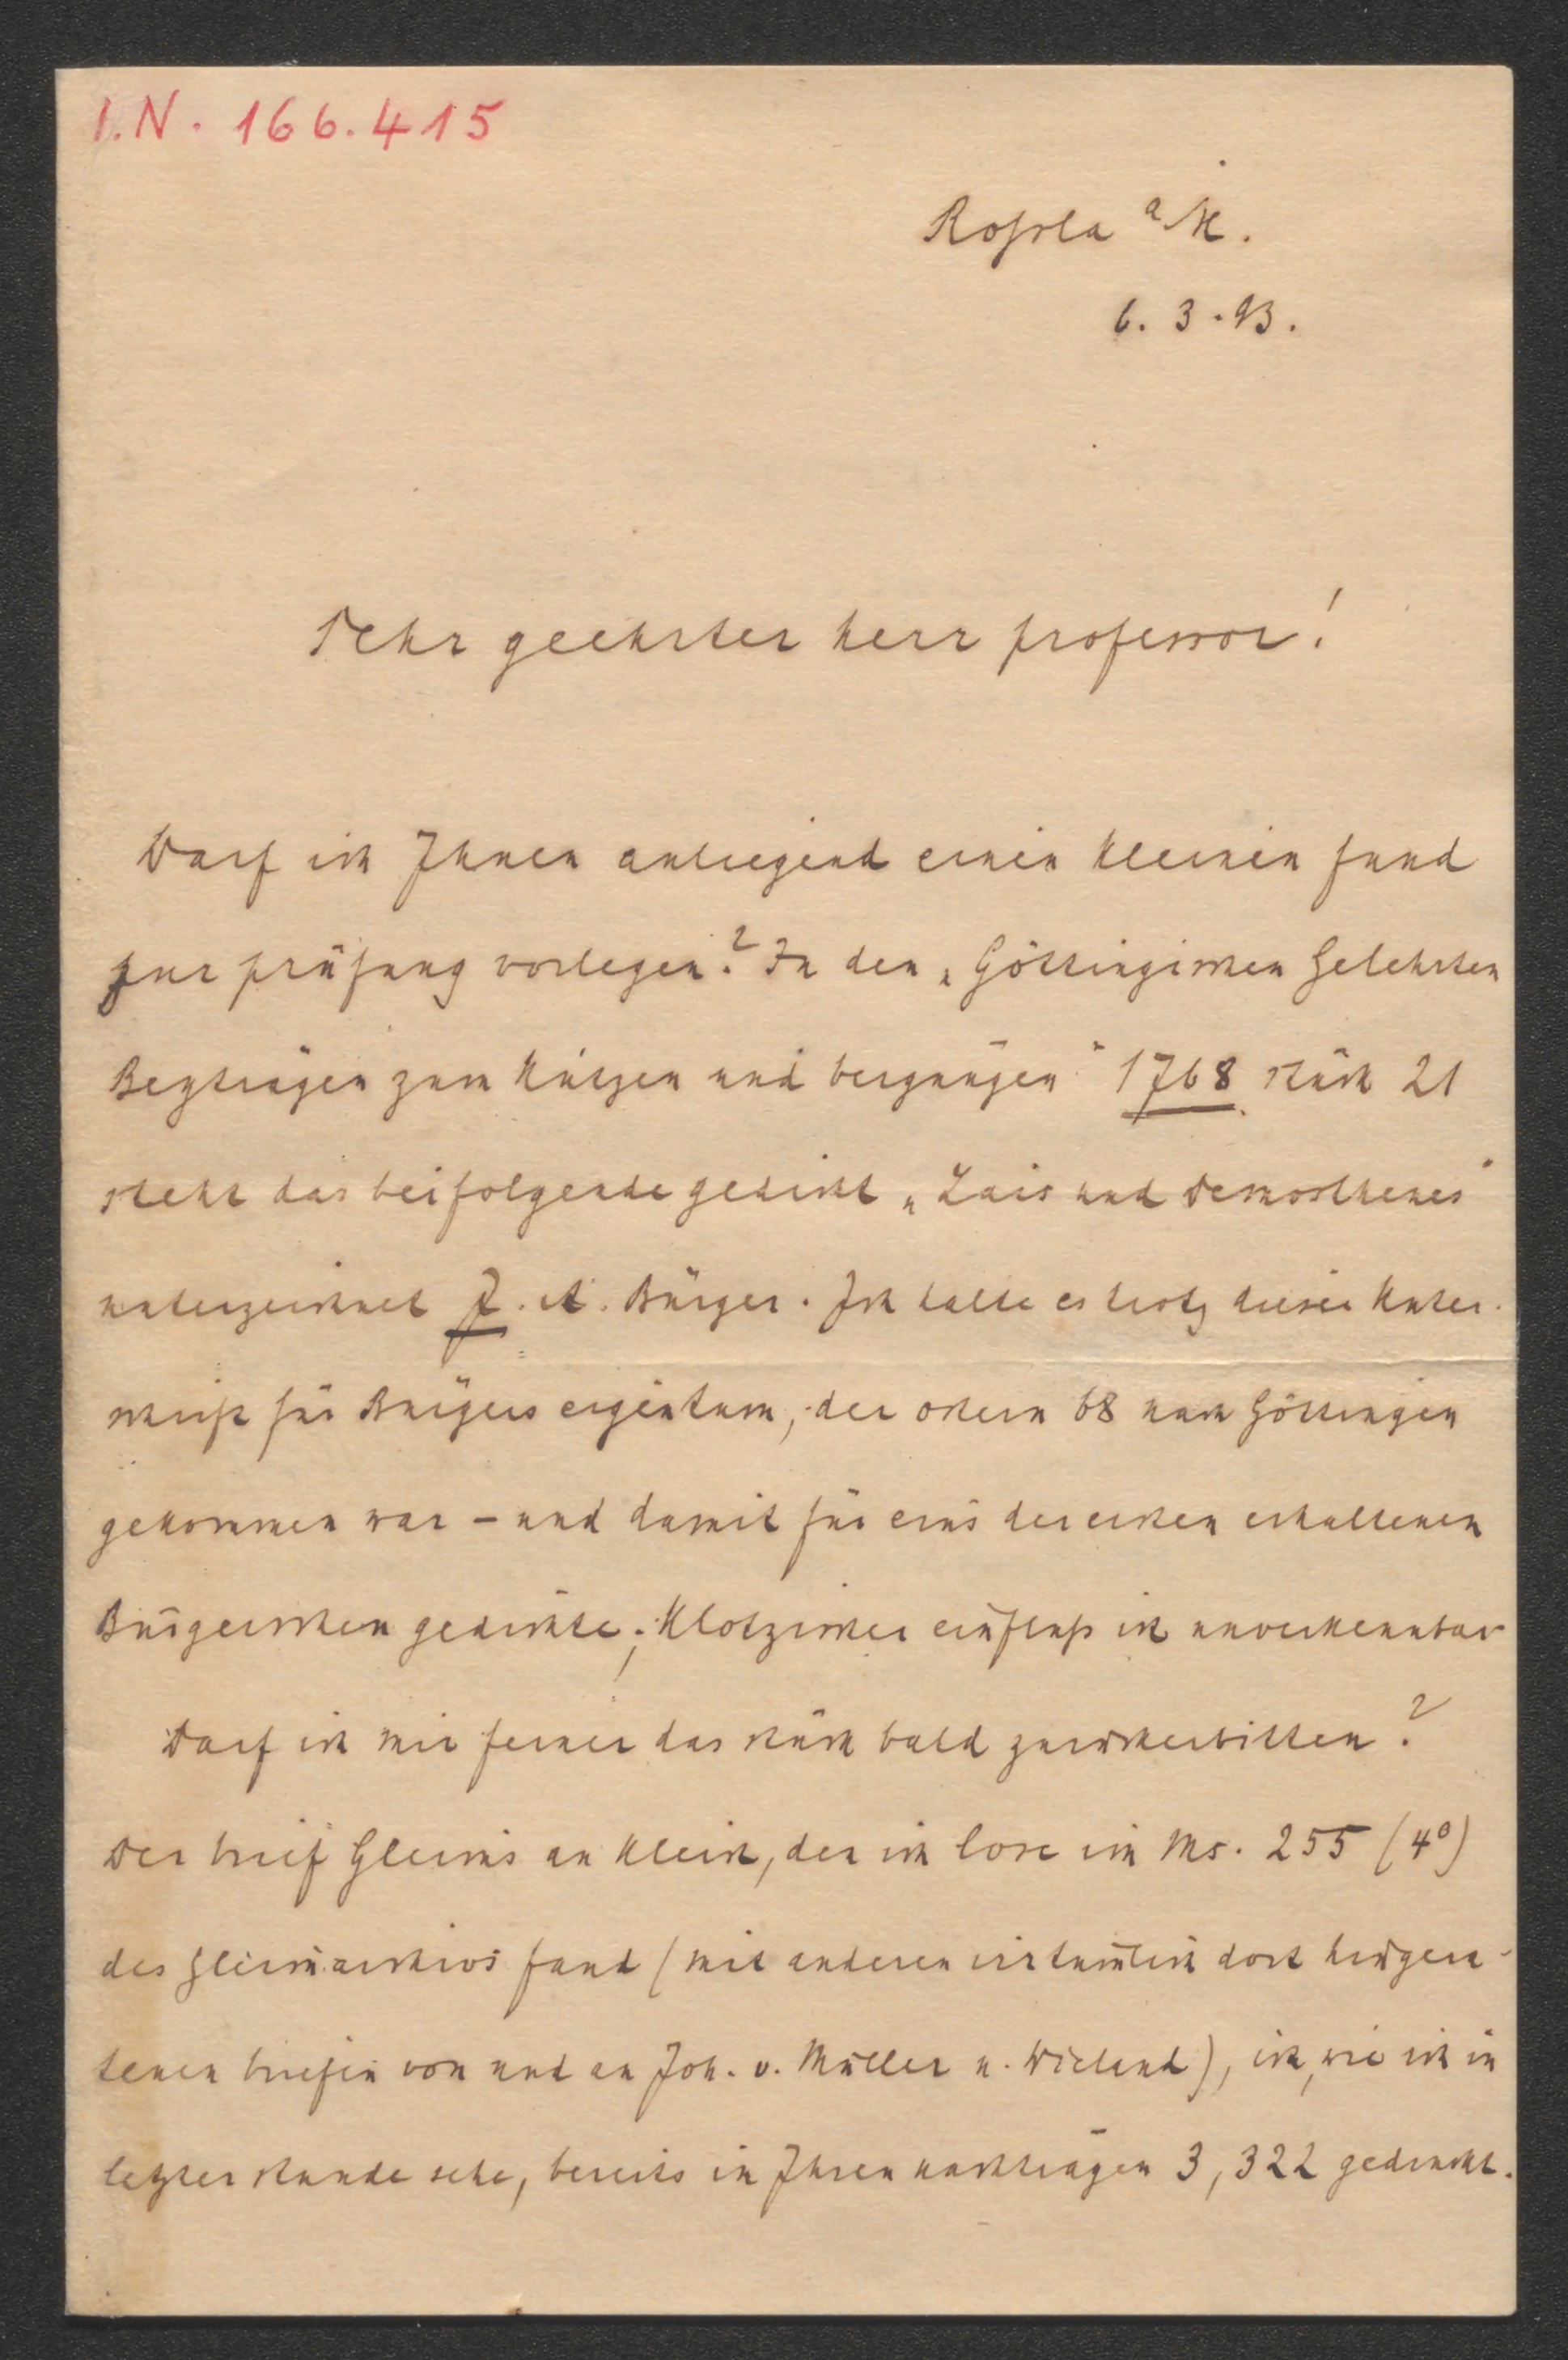 I.N. 166.415
Rossla a/H.
6. 3. 93.
Sehr geehrter herr professor!
Darf ich Ihnen anliegend einen kleinen fund
zur prüfung vorlegen? In den „Göttingischen Gelehrten
Beyträgen zum Nutzen und Vergnügen" 1768 stück 21
steht das beifolgende gedicht „Lais und Demosthenes"
unterzeichnet J. A. Bürger. Ich halte es trotz dieser Unter-
schrift für Bürgers eigentum, der ostern 68 nach Göttingen
gekommen war – und damit für eins der ersten erhaltenen
Bürgerschen gedichte; Klotzischer einfluss ist unverkennbar
Darf ich mir ferner das stück bald zurückerbitten?
Der brief Gleims an Kleist, den ich lose im Ms. 255 (4°)
des Gleimarchivs fand (mit anderen irrtümlich dort hingera-
tenen briefen von und an Joh. v. Müller u. Wieland), ist, wie ich in
letzter stunde sehe, bereits in Ihren nachträgen 3, 322 gedruckt.